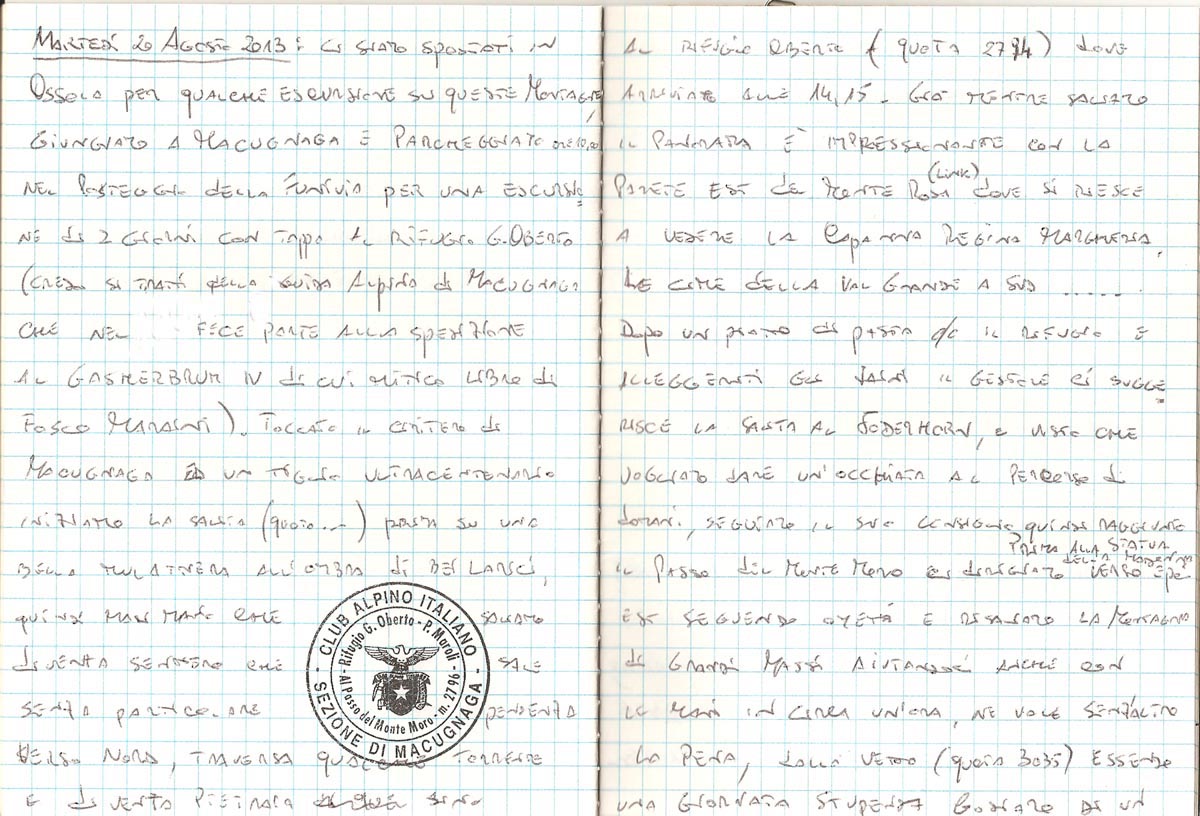 MARTEDÌ 20 AGOSTO 2013: CI SIAMO SPOSTATI IN
OSSOLA PER QUALCHE ESCURSIONE SU QUESTE MONTAGNE,
GIUNGIAMO A MACUGNAGA E PARCHEGGIAMO ORE 10,00
NEL POSTEGGIO DELLA FUNIVIA PER UNA ESCURSIO
NE DI 2 GIORNI CON TAPPA AL RIFUGIO G. OBERTO
(CREDO SI TRATTI DELLA GUIDA ALPINA DI MACUGNAGA
CHE NEL FECE PARTE ALLA SPEDIZIONE
AL GASHERBRUM IV DI CUI MITICO LIBRO DI
FOSCO MARAINI). TOCCATO IL CIMITERO DI
MACUGNAGA ED UN TIGLIO ULTRACENTENARIO
INIZIAMO LA SALITA (QUOTA ...) POSTA SU UNA
BELLA MULATTIERA ALL'OMBRA DI BEI LARICI,
QUINDI MAN MANO CHE SALIAMO
DIVENTA SENTIERO CHE SALE
SENZA PARTICOLARE PENDENZA
VERSO NORD, TRAVERSA QUALCHE TORRENTE
E DIVENTA PIETRAIA SINO
CLUB ALPINO ITALIANO
SEZIONE DI MACUGNAGA
Rifugio G. Oberto - P. Maroli
Al Passo del Monte Moro - m. 2796
AL RIFUGIO OBERTO (QUOTA 2794) DOVE
ARRIVIAMO ALLE 14,15. GIÀ MENTRE SALIAMO
IL PANORAMA È IMPRESSIONANTE CON LA
(LINK)
PARETE EST DEL MONTE ROSA DOVE SI RIESCE
A VEDERE LA CAPANNA REGINA MARGHERITA,
LE CIME DELLA VAL GRANDE A SUD ......
DOPO UN PIATTO DI PASTA c/o IL RIFUGIO E
ALLEGGERITI GLI ZAINI IL GESTORE CI SUGGE
RISCE LA SALITA AL JODERHORN, E VISTO CHE
VOGLIAMO DARE UN'OCCHIATA AL PERCORSO DI
DOMANI, SEGUIAMO IL SUO CONSIGLIO, QUINDI RAGGIUNTO
PRIMA ALLA STATUA
DELLA MADONNA
IL PASSO DEL MONTE MORO CI DIRIGIAMO VERSO
EST SEGUENDO OMETTI E RISALIAMO LA MONTAGNA
DI GRANDI MASSI AIUTANDOCI ANCHE CON
LE MANI IN CIRCA UN'ORA, NE VALE SENZ'ALTRO
LA PENA, DALLA VETTA (QUOTA 3035) ESSENDO
UNA GIORNATA STUPENDA GODIAMO DI UN